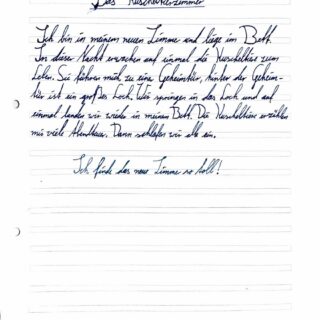 Das Kuscheltierzimmer
Ich bin in meinem neuen Zimmer und liege im Bett.
In dieser Nacht erwachen auf einmal die Kuscheltier zum
Leben. Sie führen mich zu eine Geheimtür, hinter der Geheim-
tür ist ein großes Loch. Wir springen in das Loch und auf
einmal landen wir wieder in meinem Bett. Die Kuscheltiere erzählen
mir viele Abenteuer. Dann schlafen wir alle ein.
Ich finde das neue Zimmer so toll!